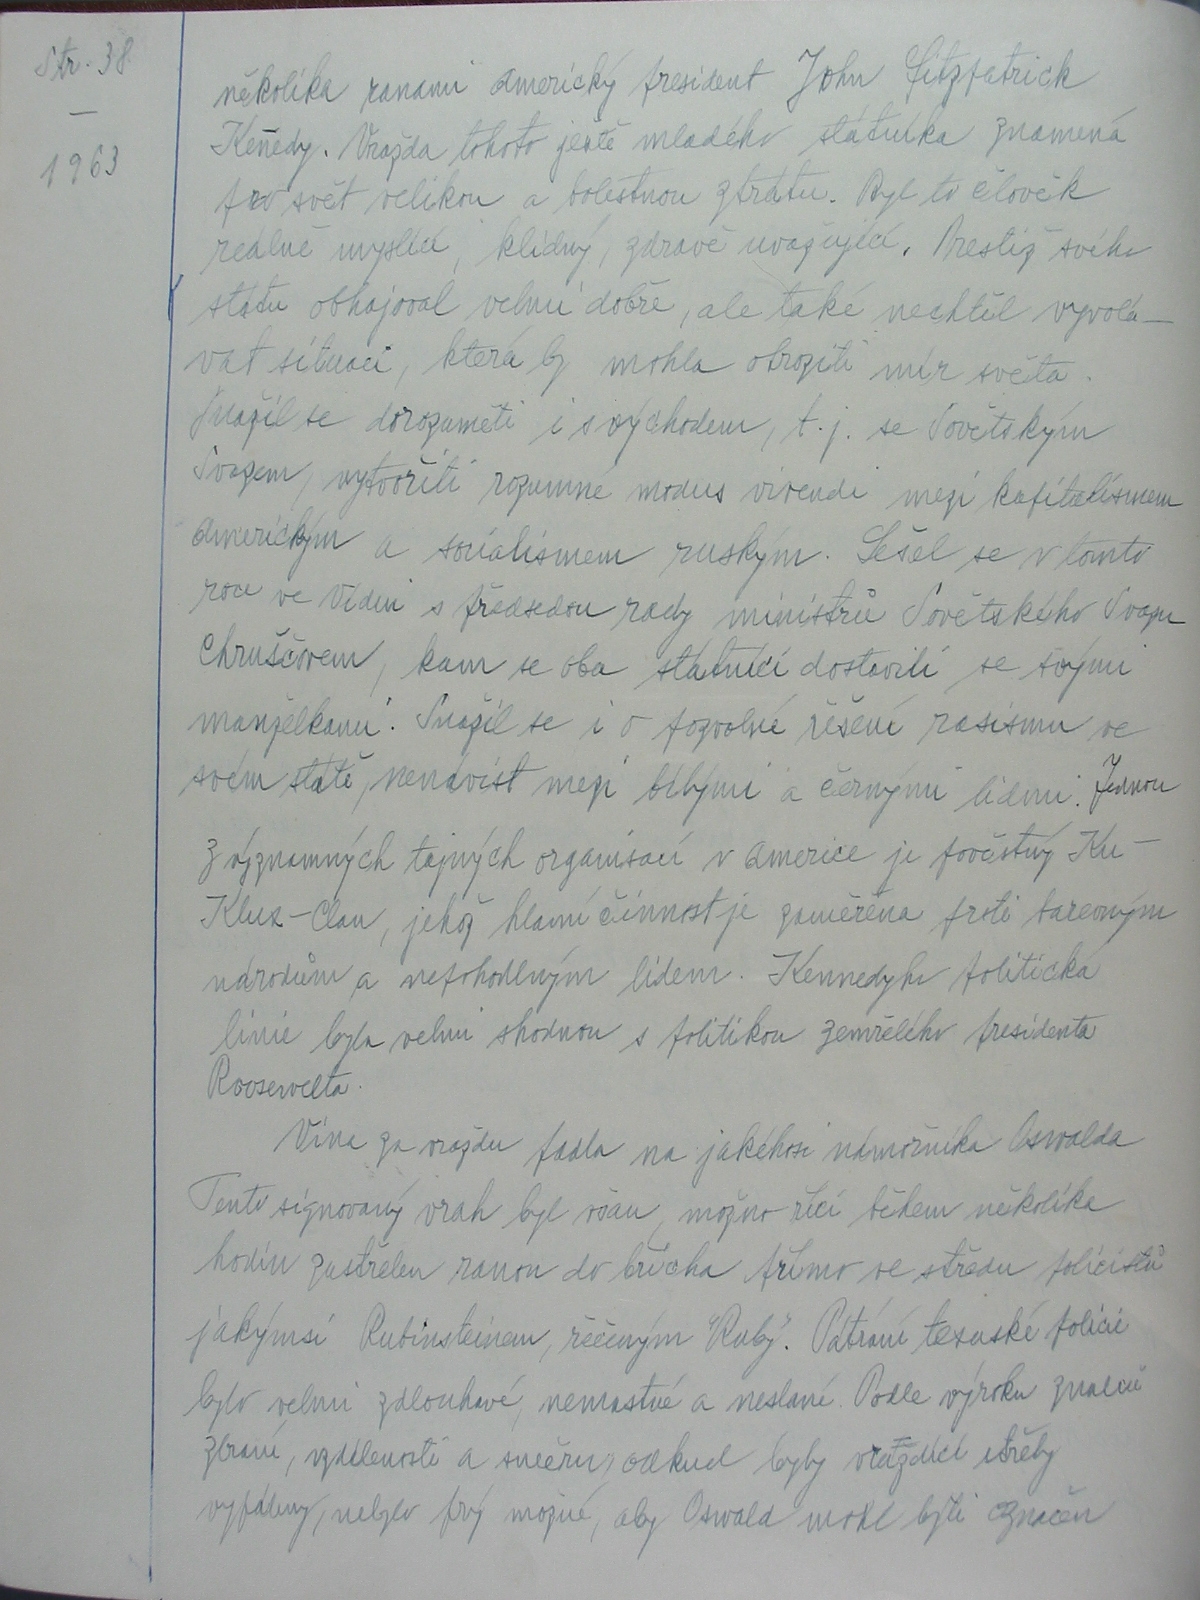 Str. 38
—
1963
několika ranami americký president John Fitzpatrick
Kenedy. Vražda tohoto ještě mladého státníka znamená
pro svět velikou a bolestnou ztrátu. Byl to člověk
reálně myslící, klidný, zdravě uvažující. Prestiž svého
státu obhajoval velmi dobře, ale také nechtěl vyvolá–
vat situaci, která by mohla ohroziti mír světa.
Snažil se dorozuměti i s východem, t.j. se Sovětským
Svazem, vytvořiti rozumné modus vivendi mezi kapitalismem
americkým a socialismem ruským. Sešel se v tomto
roce ve Vídni s předsedou rady ministrů Sovětského Svazu
Chruščovem, kam se oba státníci dostavili se svými
manželkami. Snažil se i o pozvolné řešení rasismu ve
svém státě, nenávist mezi bílými a černými lidmi. Jednou
z význanmných tajných organisací v Americe je pověstný Ku–
Klux–Clan, jehož hlavní činnost je zaměřena proti barevným
národům a nepohodlným lidem. Kennedyho politická
linie byla velmi shodnou s politikou zemřelého presidenta
Roosewelta.
Vina za vraždu padla na jakéhosi námořníka Oswalda
Tento signovaný vrah byl všau, možno říci během několika
hodin zastřelen ranou do břicha přímo ve středu policistů
jakýmsi Rubinsteinem, řečeným "Ruby". Pátrání texaské policie
bylo velmi zdlouhavé, nemastné a neslané. Podle výroku znalců
zbraní, vzdálenosti a směru, odkud byly vraždící střely
vypáleny, nebylo prý možné, aby Oswald mohl býti označen